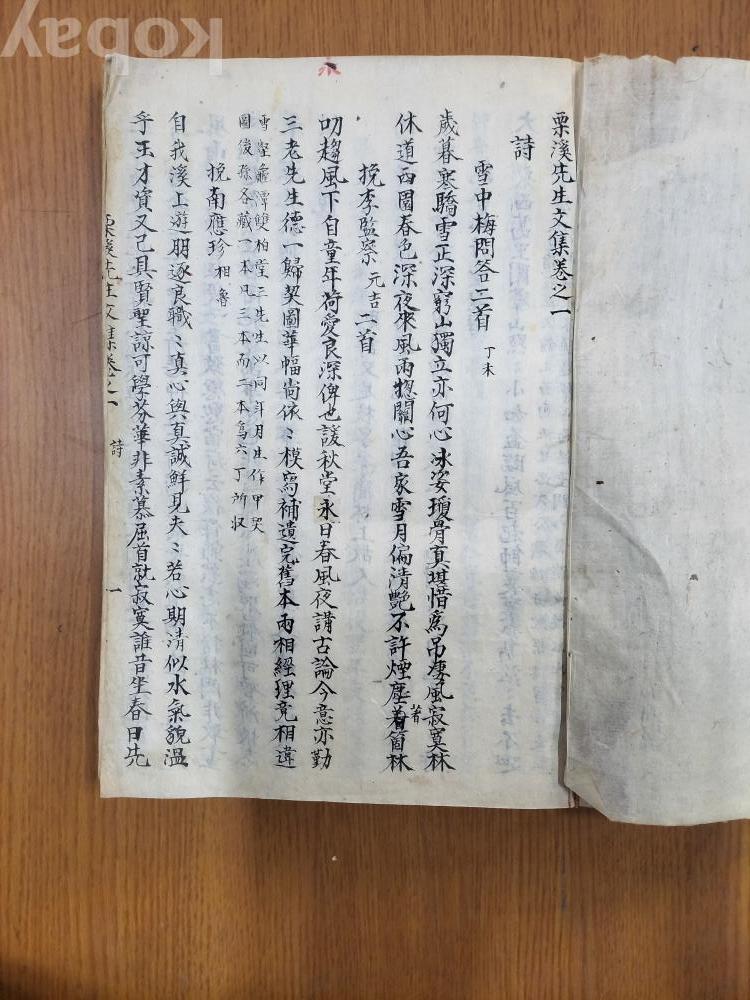 栗溪先生文集卷之一
詩
雪中梅問答二首 丁未
歲暮寒驕雪正深窮山獨立亦何心冰姿瓊骨真堪惜爲吊凄風寂寞林
休道西園春色深夜來風雨揔關心吾家雪月偏清艶不許煙塵着箇林
著
挽李監察 元吉 二首
叨趨風下自童年荷愛良深俾也諼秋堂永日春風夜講古論今意亦勤
三老先生德一歸契圖華幅尙依〻模寫補遺完舊本兩相經理竟相違
雪壑龜潭雙柏堂三先生以同年月生作甲契
圖後孫各藏一本凡三本而二本爲六丁所収
挽南應珍 相魯
自我溪上遊朋逐良職〻真心與真誠鮮見夫〻若心期清似水氣貌溫
乎玉才資又己具賢聖諒可學芬華非素慕屈首就寂寞誰昔坐春日先
栗溪先生文集卷之一 詩 一
kobay